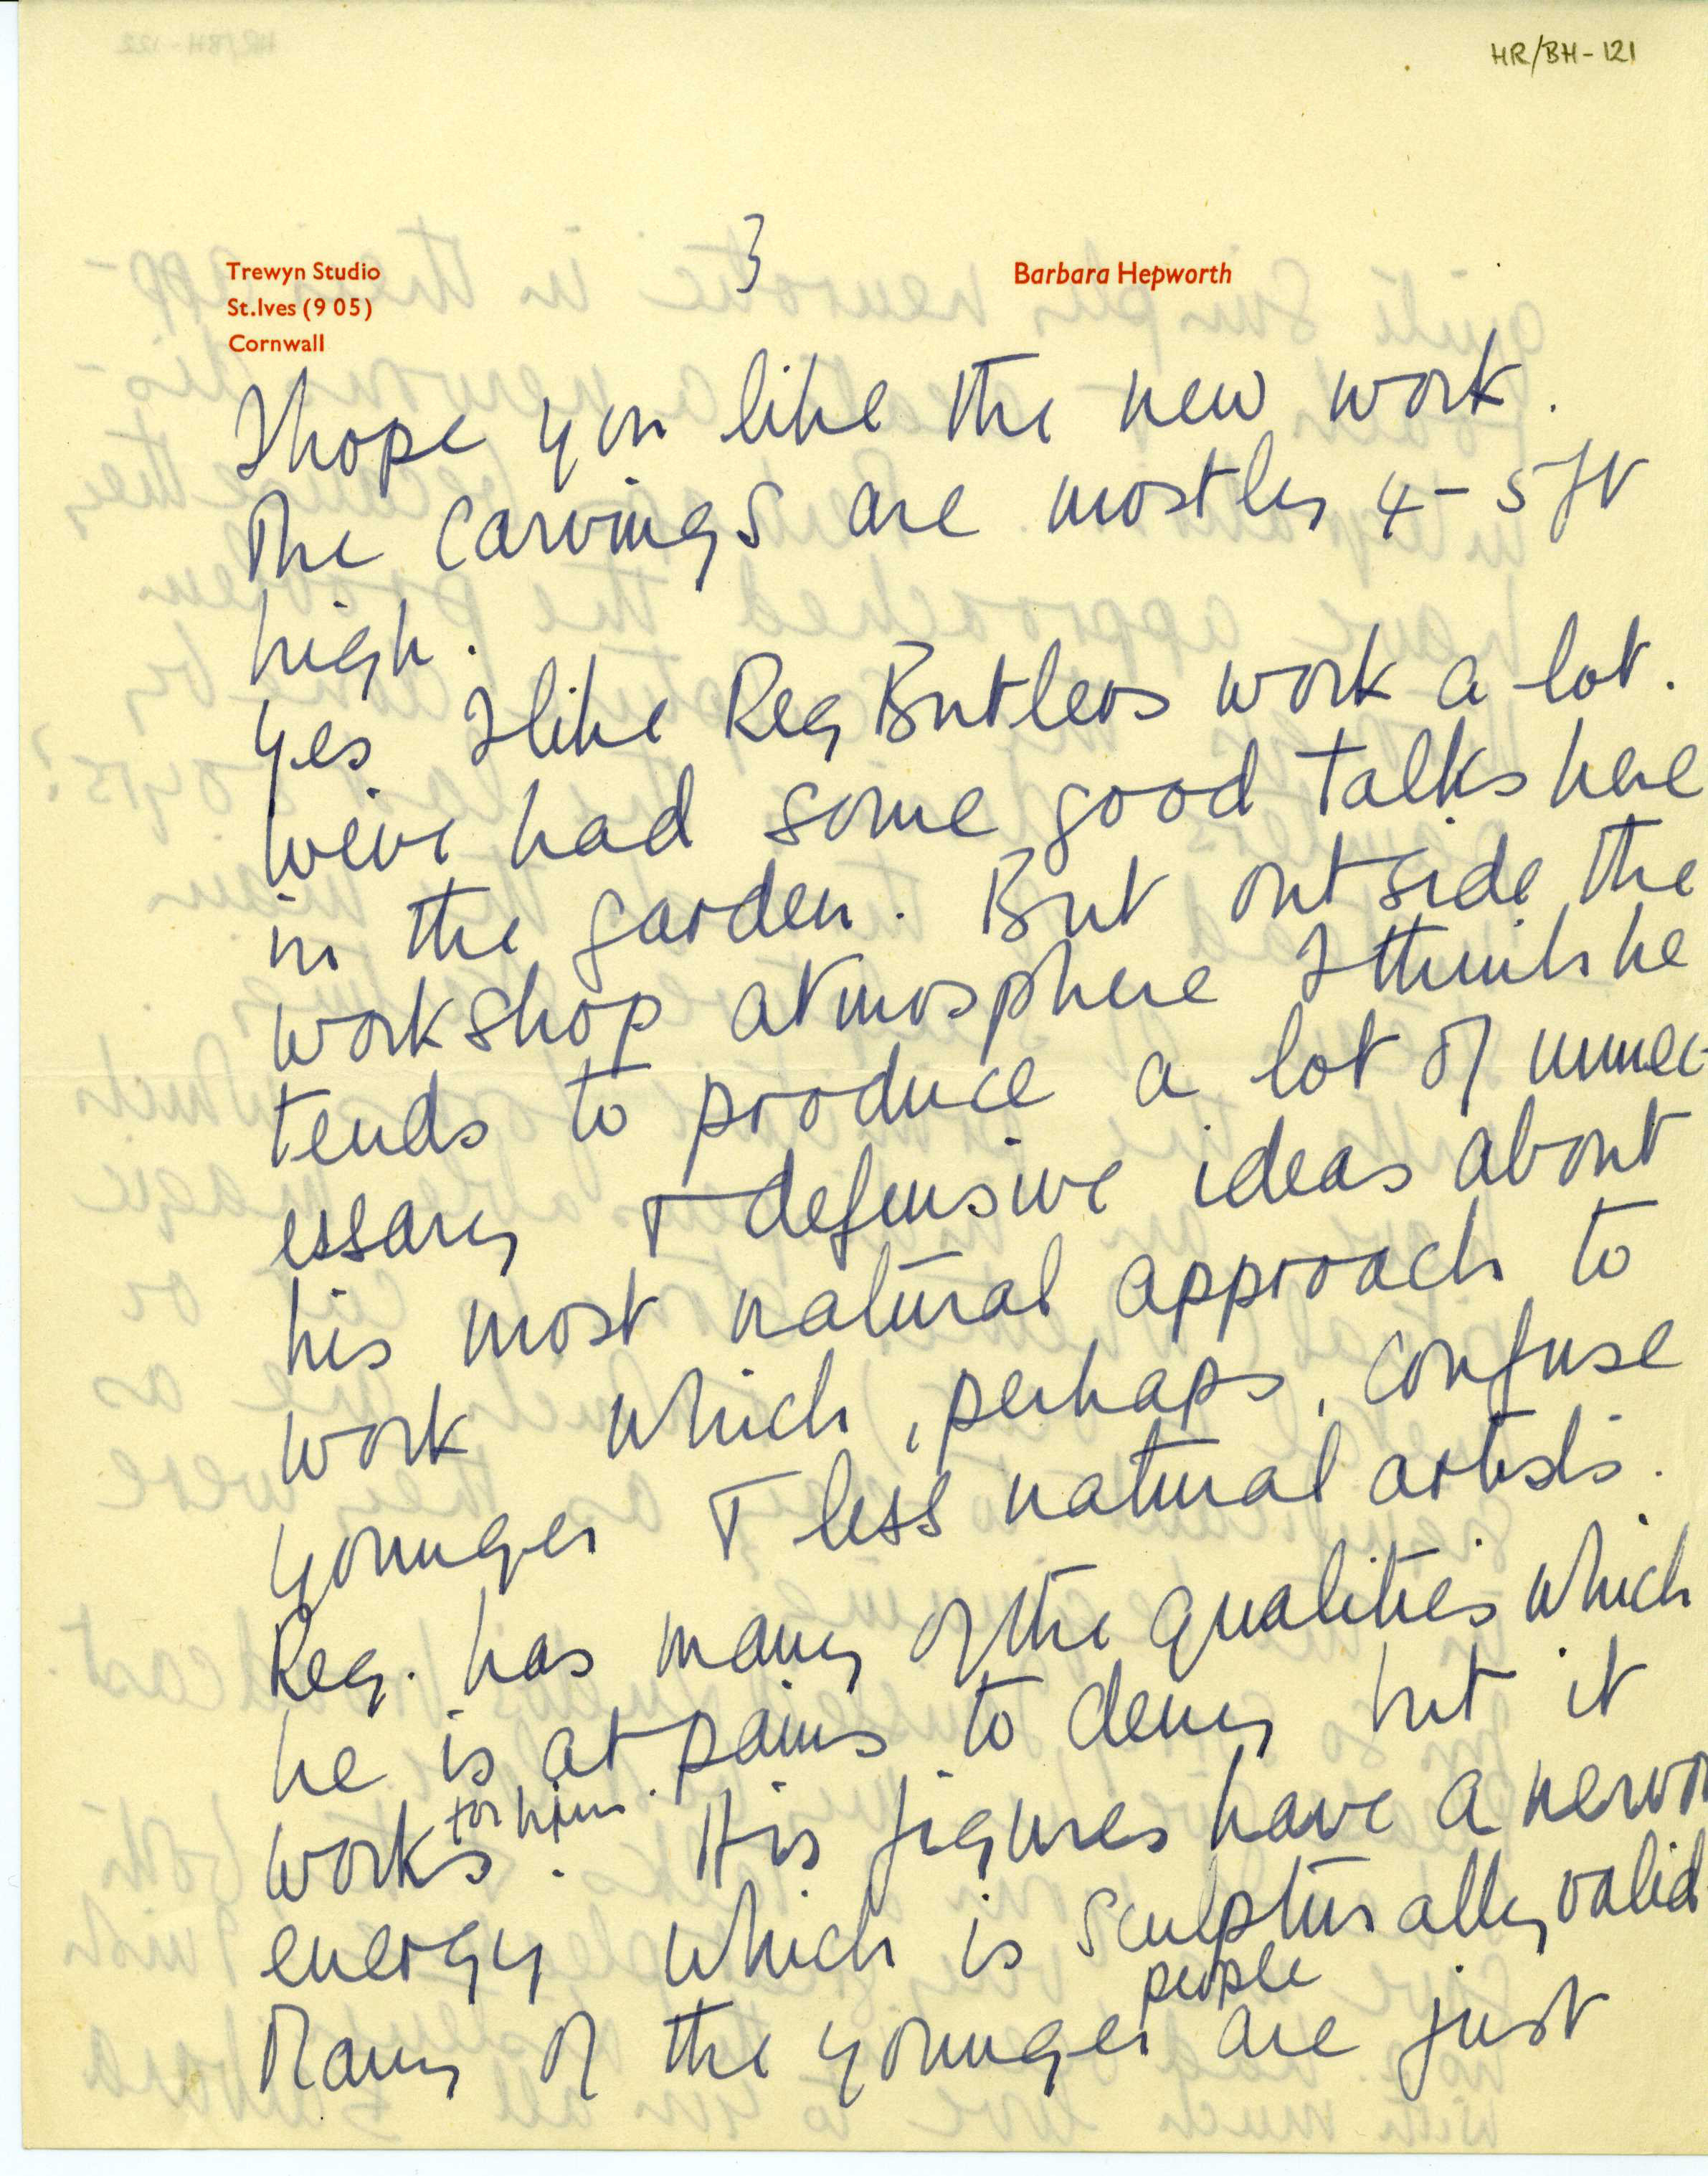 HR/BH-121
3
Trewyn Studio
St.Ives (9 05)
Cornwall
Barbara Hepworth
I hope you like the new work.
The carvings are mostly 4 – 5 ft
high.
Yes I like Reg Butlers work a lot.
We've had some good talks here
in the garden. But outside the
workshop atmosphere I think he
tends to produce a lot of unnec-
essary + defensive ideas about
his most natural approach to
work which, perhaps, confuse
younger + less natural artists.
Reg. has many of the qualities which
he is at pains to deny but it
works for him. His figures have a nervo
energy which is sculpturally valid
Many of the younger people are just